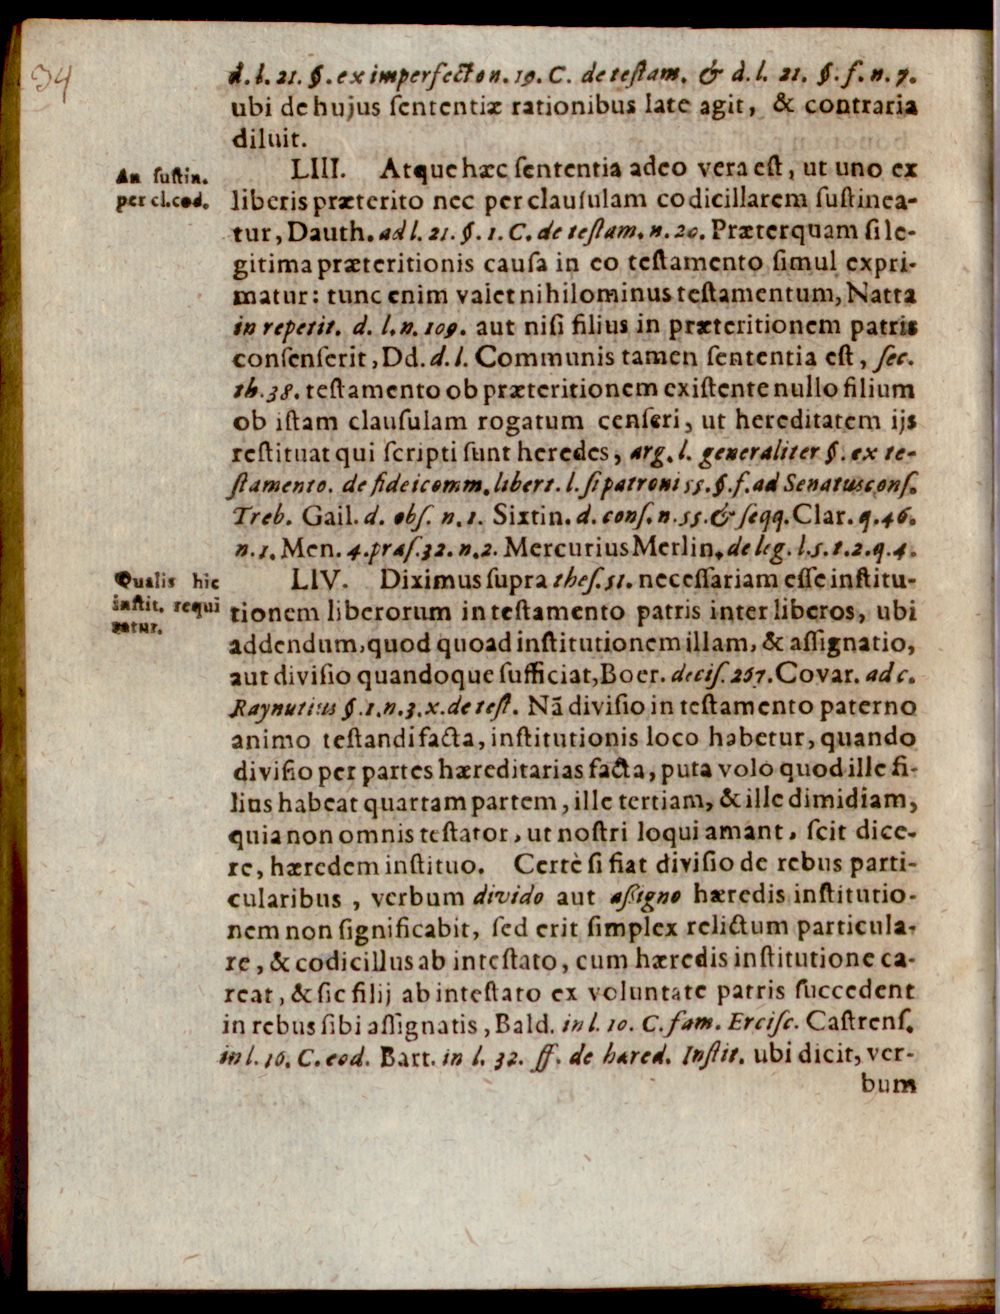 34
d. l. 21. §. ex imperfecto n. 19. C. de teſtam. & d. l. 21. §. f. n. 7.
ubi de hujus ſententiæ rationibus late agit, & contraria
diluit.
An ſuſtin.
per cl. cod.
LIII. Atque hæc ſententia adeo vera eſt, ut uno ex
liberis præterito nec per clauſulam codicillarem ſuſtinea-
tur, Dauth. ad l. 21. §. 1. C. de teſtam. n. 20. Præterquam ſi le-
gitima præteritionis cauſa in eo teſtamento ſimul expri-
matur: tunc enim valet nihilominus teſtamentum, Natta
in repetit. d. l. n. 109. aut niſi filius in præteritionem patris
conſenſerit, Dd. d. l. Communis tamen ſententia eſt, ſec.
th. 38. teſtamento ob præteritionem exiſtente nullo filium
ob iſtam clauſulam rogatum cenſeri, ut hereditatem ijs
reſtituat qui ſcripti ſunt heredes, arg. l. generaliter §. ex te-
ſtamento. de fideicomm. libert. l. ſi patroni 55. §. f. ad Senatusconſ.
Treb. Gail. d. obſ. n. 1. Sixtin. d. conſ. n. 55. & ſeqq. Clar. q. 46.
n. 1. Men. 4. præſ. 32. n. 2. Mercurius Merlin. de leg. l. 5. t. 2. q. 4.
Qualis hic
inſtit. requi
ratur.
LIV. Diximus ſupra theſ. 51. neceſſariam eſſe inſtitu-
tionem liberorum in teſtamento patris inter liberos, ubi
addendum, quod quoad inſtitutionem illam, & aſſignatio,
aut diviſio quandoque ſufficiat, Boer. deciſ. 267. Covar. ad c.
Raynutius §. 1. n. 3. x. de teſt. Nã diviſio in teſtamento paterno
animo teſtandi facta, inſtitutionis loco habetur, quando
diviſio per partes hæreditarias facta, puta volo quod ille fi-
lius habeat quartam partem, ille tertiam, & ille dimidiam,
quia non omnis teſtator, ut noſtri loqui amant, ſcit dice-
re, hæredem inſtituo. Certè ſi fiat diviſio de rebus parti-
cularibus, verbum divido aut aſsigno hæredis inſtitutio-
nem non ſignificabit, ſed erit ſimplex relictum particula-
re, & codicillus ab inteſtato, cum hæredis inſtitutione ca-
reat, & ſic filij ab inteſtato ex voluntate patris ſuccedent
in rebus ſibi aſſignatis, Bald. in l. 10. C. fam. Erciſc. Caſtrenſ.
in l. 16. C. eod. Bart. in l. 32. ff. de hæred. Inſtit. ubi dicit, ver-
bum